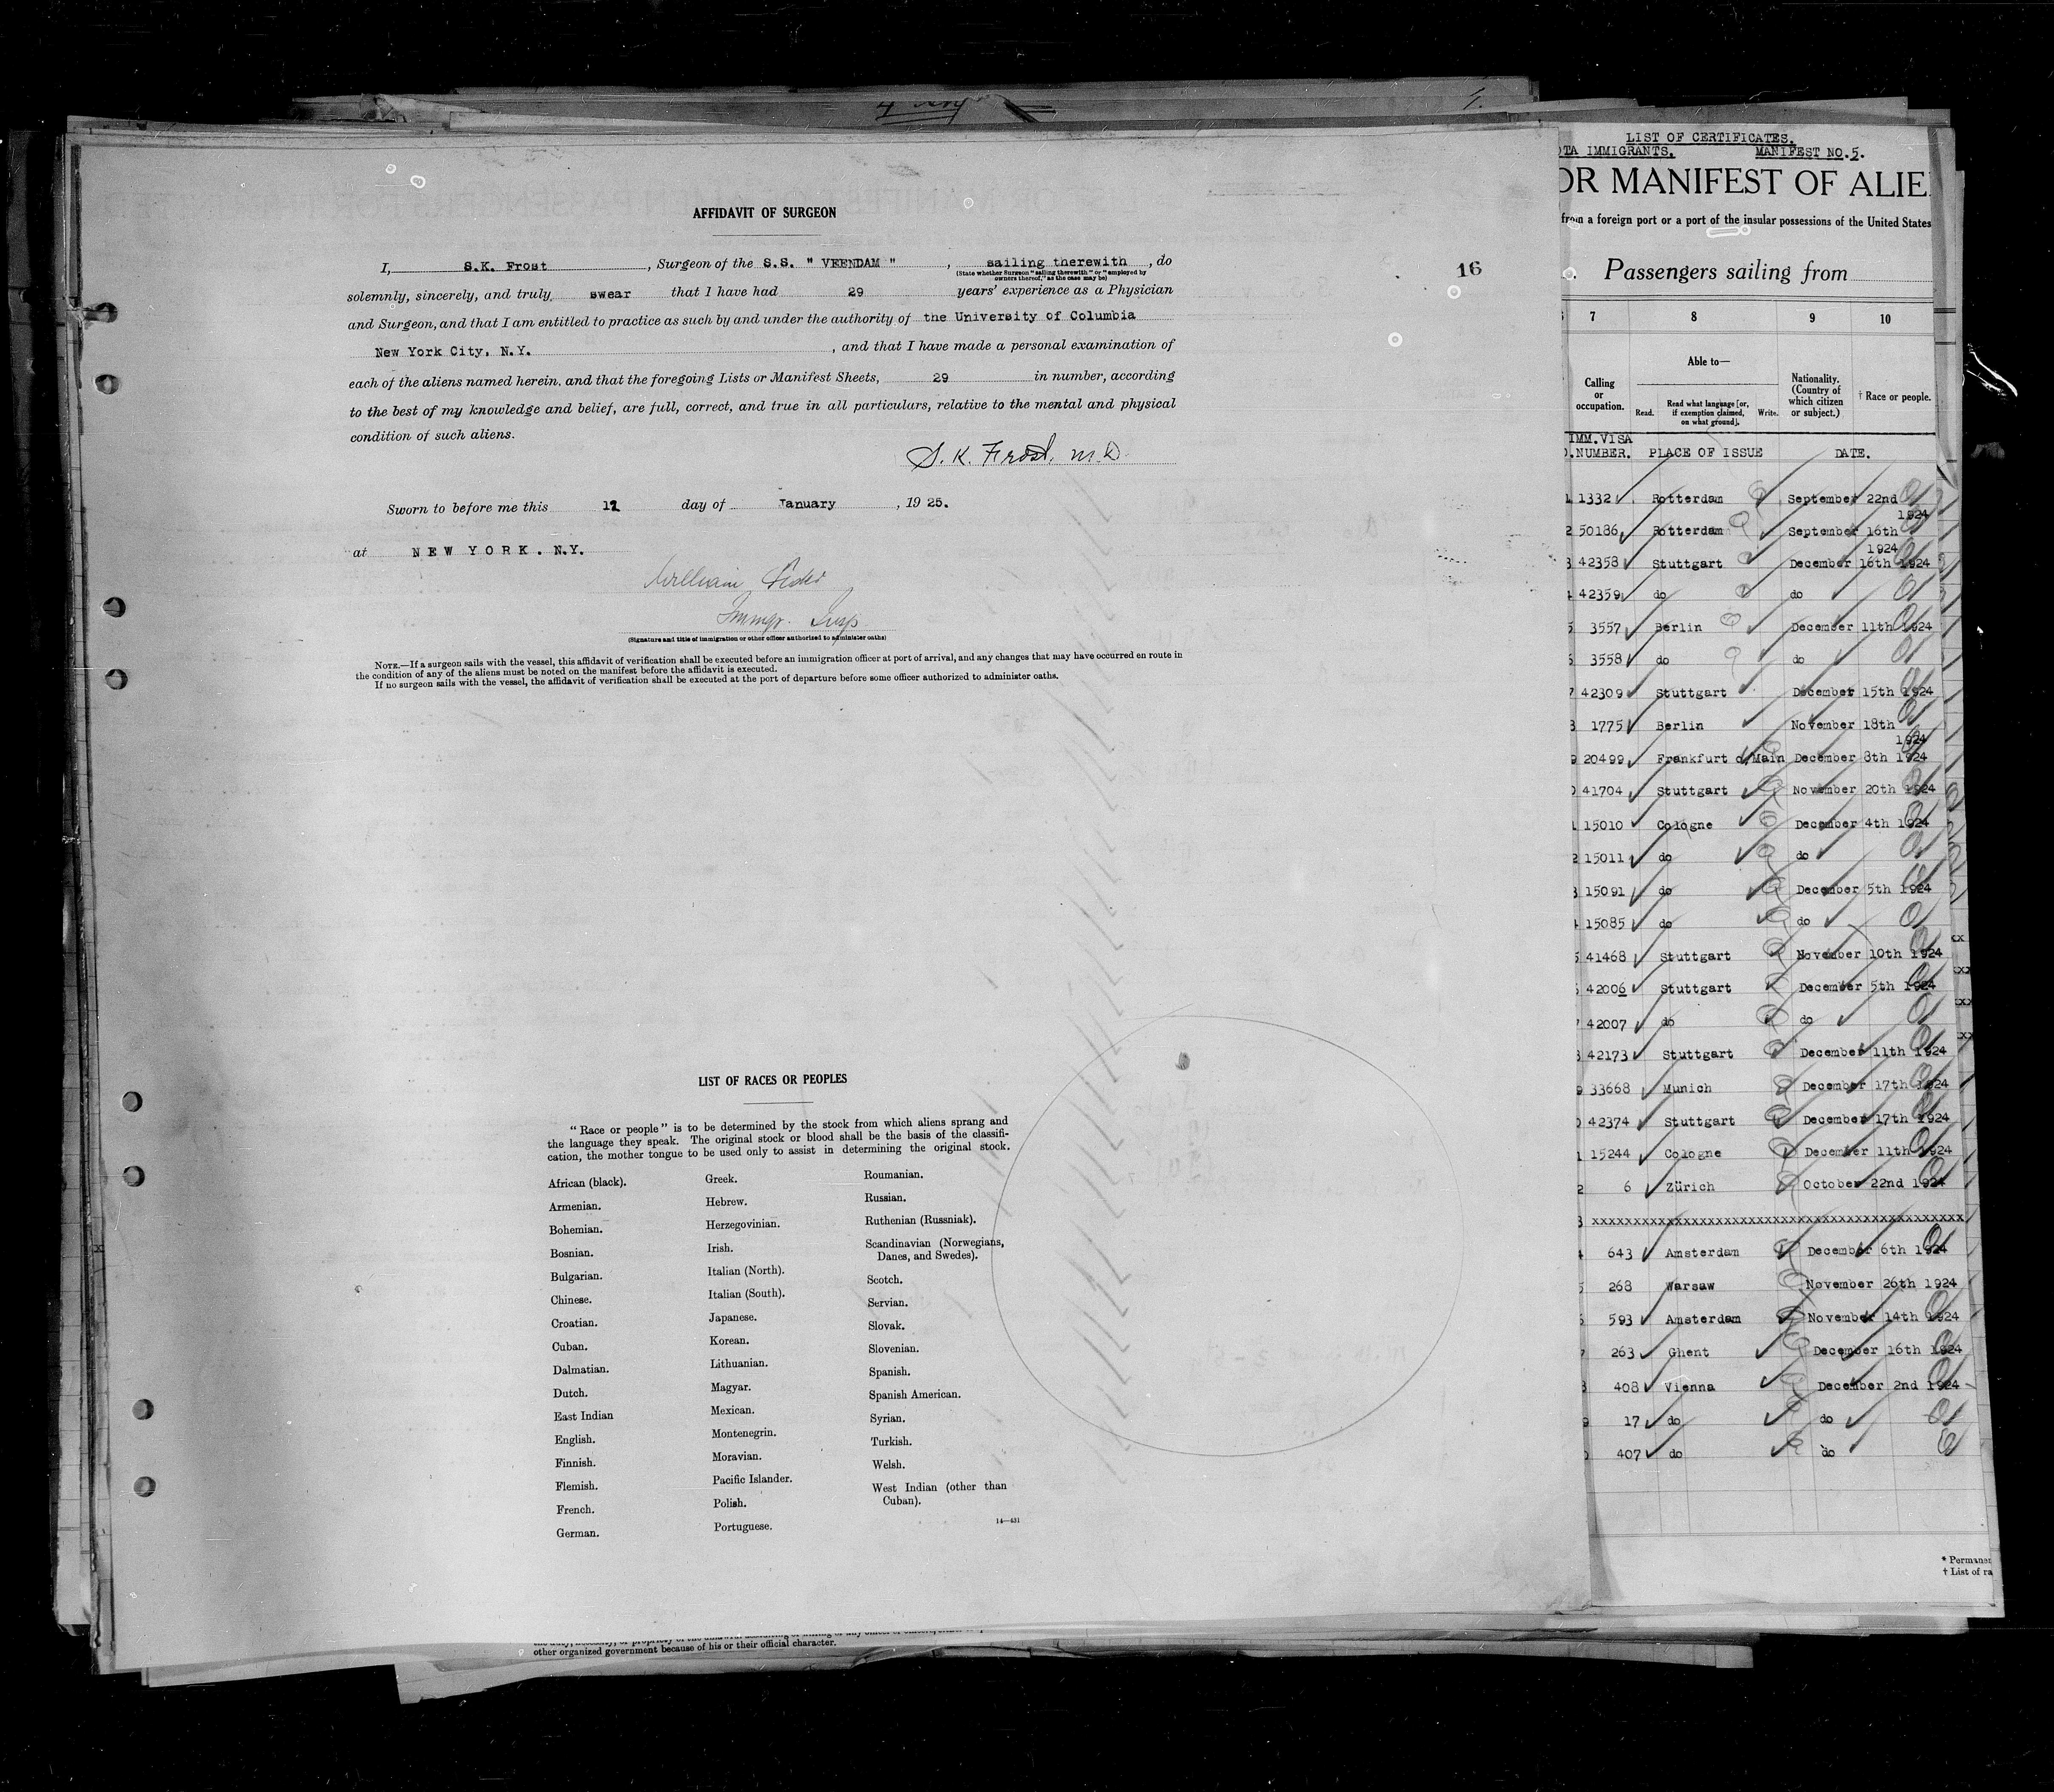 AFFIDAVIT OF SURGEON
I, S.K. Frost, Surgeon of the S.S. " VEENDAM ", sailing therewith, do
(State whether Surgeon "sailing therewith" or "employed by
owners thereof," as the case may be)
solemnly, sincerely, and truly swear that I have had 29 years' experience as a Physician
and Surgeon, and that I am entitled to practice as such by and under the authority of the University of Columbia
New York City, N.Y., and that I have made a personal examination of
each of the aliens named herein, and that the foregoing Lists or Manifest Sheets, 29 in number, according
to the best of my knowledge and belief, are full, correct, and true in all particulars, relative to the mental and physical
condition of such aliens.
S. K. Frost, M.D.
Sworn to before me this day of January, 1925.
at NEW YORK. N.Y.
William
Immgr. Insp.
(Signature and title of immigration or other officer authorized to administer oaths)
NOTE.—If a surgeon sails with the vessel, this affidavit of verification shall be executed before an immigration officer at port of arrival, and any changes that may have occurred en route in
the condition of any of the aliens must be noted on the manifest before the affidavit is executed.
If no surgeon sails with the vessel, the affidavit of verification shall be executed at the port of departure before some officer authorized to administer oaths.
16
LIST OF RACES OR PEOPLES
"Race or people" is to be determined by the stock from which aliens sprang and
the language they speak. The original stock or blood shall be the basis of the classifi-
cation, the mother tongue to be used only to assist in determining the original stock.
African (black).
Armenian.
Bohemian.
Bosnian.
Bulgarian.
Chinese.
Croatian.
Cuban.
Dalmatian.
Dutch.
East Indian
English.
Finnish.
Flemish.
French.
German.
Greek.
Hebrew.
Herzegovinian.
Irish.
Italian (North).
Italian (South).
Japanese.
Korean.
Lithuanian.
Magyar.
Mexican.
Montenegrin.
Moravian.
Pacific Islander.
Polish.
Portuguese.
Roumanian.
Russian.
Ruthenian (Russniak).
Scandinavian (Norwegians,
Danes, and Swedes).
Scotch.
Servian.
Slovak.
Slovenian.
Spanish.
Spanish American.
Syrian.
Turkish.
Welsh.
West Indian (other than
Cuban).
14—431
other organized government because of his or their official character.
LIST OF CERTIFICATES.
OTA IMMIGRANTS. MANIFEST NO.5.
OR MANIFEST OF ALIE
from a foreign port or a port of the insular possessions of the United States
Passengers sailing from
7 8 9 10
Calling
or
occupation.
Able to—
Read.
Read what language [or,
if exemption claimed,
on what ground].
Write.
Nationality.
(Country of
which citizen
or subject.)
† Race or people.
IMM.VISA
NUMBER. PLACE OF ISSUE DATE.
1 1332 Rotterdam September 22nd
1924
2 50186 Rotterdam September 16th
1924
3 42358 Stuttgart December 16th 1924
4 42359 do do
5 3557 Berlin December 11th 1924
6 3558 do do
7 42309 Stuttgart December 15th 1924
8 1775 Berlin November 18th
1924
9 20499 Frankfurt d/Main December 8th 1924
0 41704 Stuttgart November 20th 1924
1 15010 Cologne December 4th 1924
2 15011 do do
3 15091 do December 5th 1924
4 15085 do do
5 41468 Stuttgart November 10th 1924
6 42006 Stuttgart December 5th 1924
7 42007 do do
8 42173 Stuttgart December 11th 1924
9 33668 Munich December 17th 1924
0 42374 Stuttgart December 17th 1924
1 15244 Cologne December 11th 1924
2 6 Zürich October 22nd 1924
3 xxxxxxxxxxxxxxxxxxxxxxxxxxxxxxxxxxxxxxxxxxxx
4 643 Amsterdam December 6th 1924
5 268 Warsaw November 26th 1924
6 593 Amsterdam November 14th 1924
7 263 Ghent December 16th 1924
8 408 Vienna December 2nd 1924
9 17 do do
0 407 do do
* Permanen
† List of ra